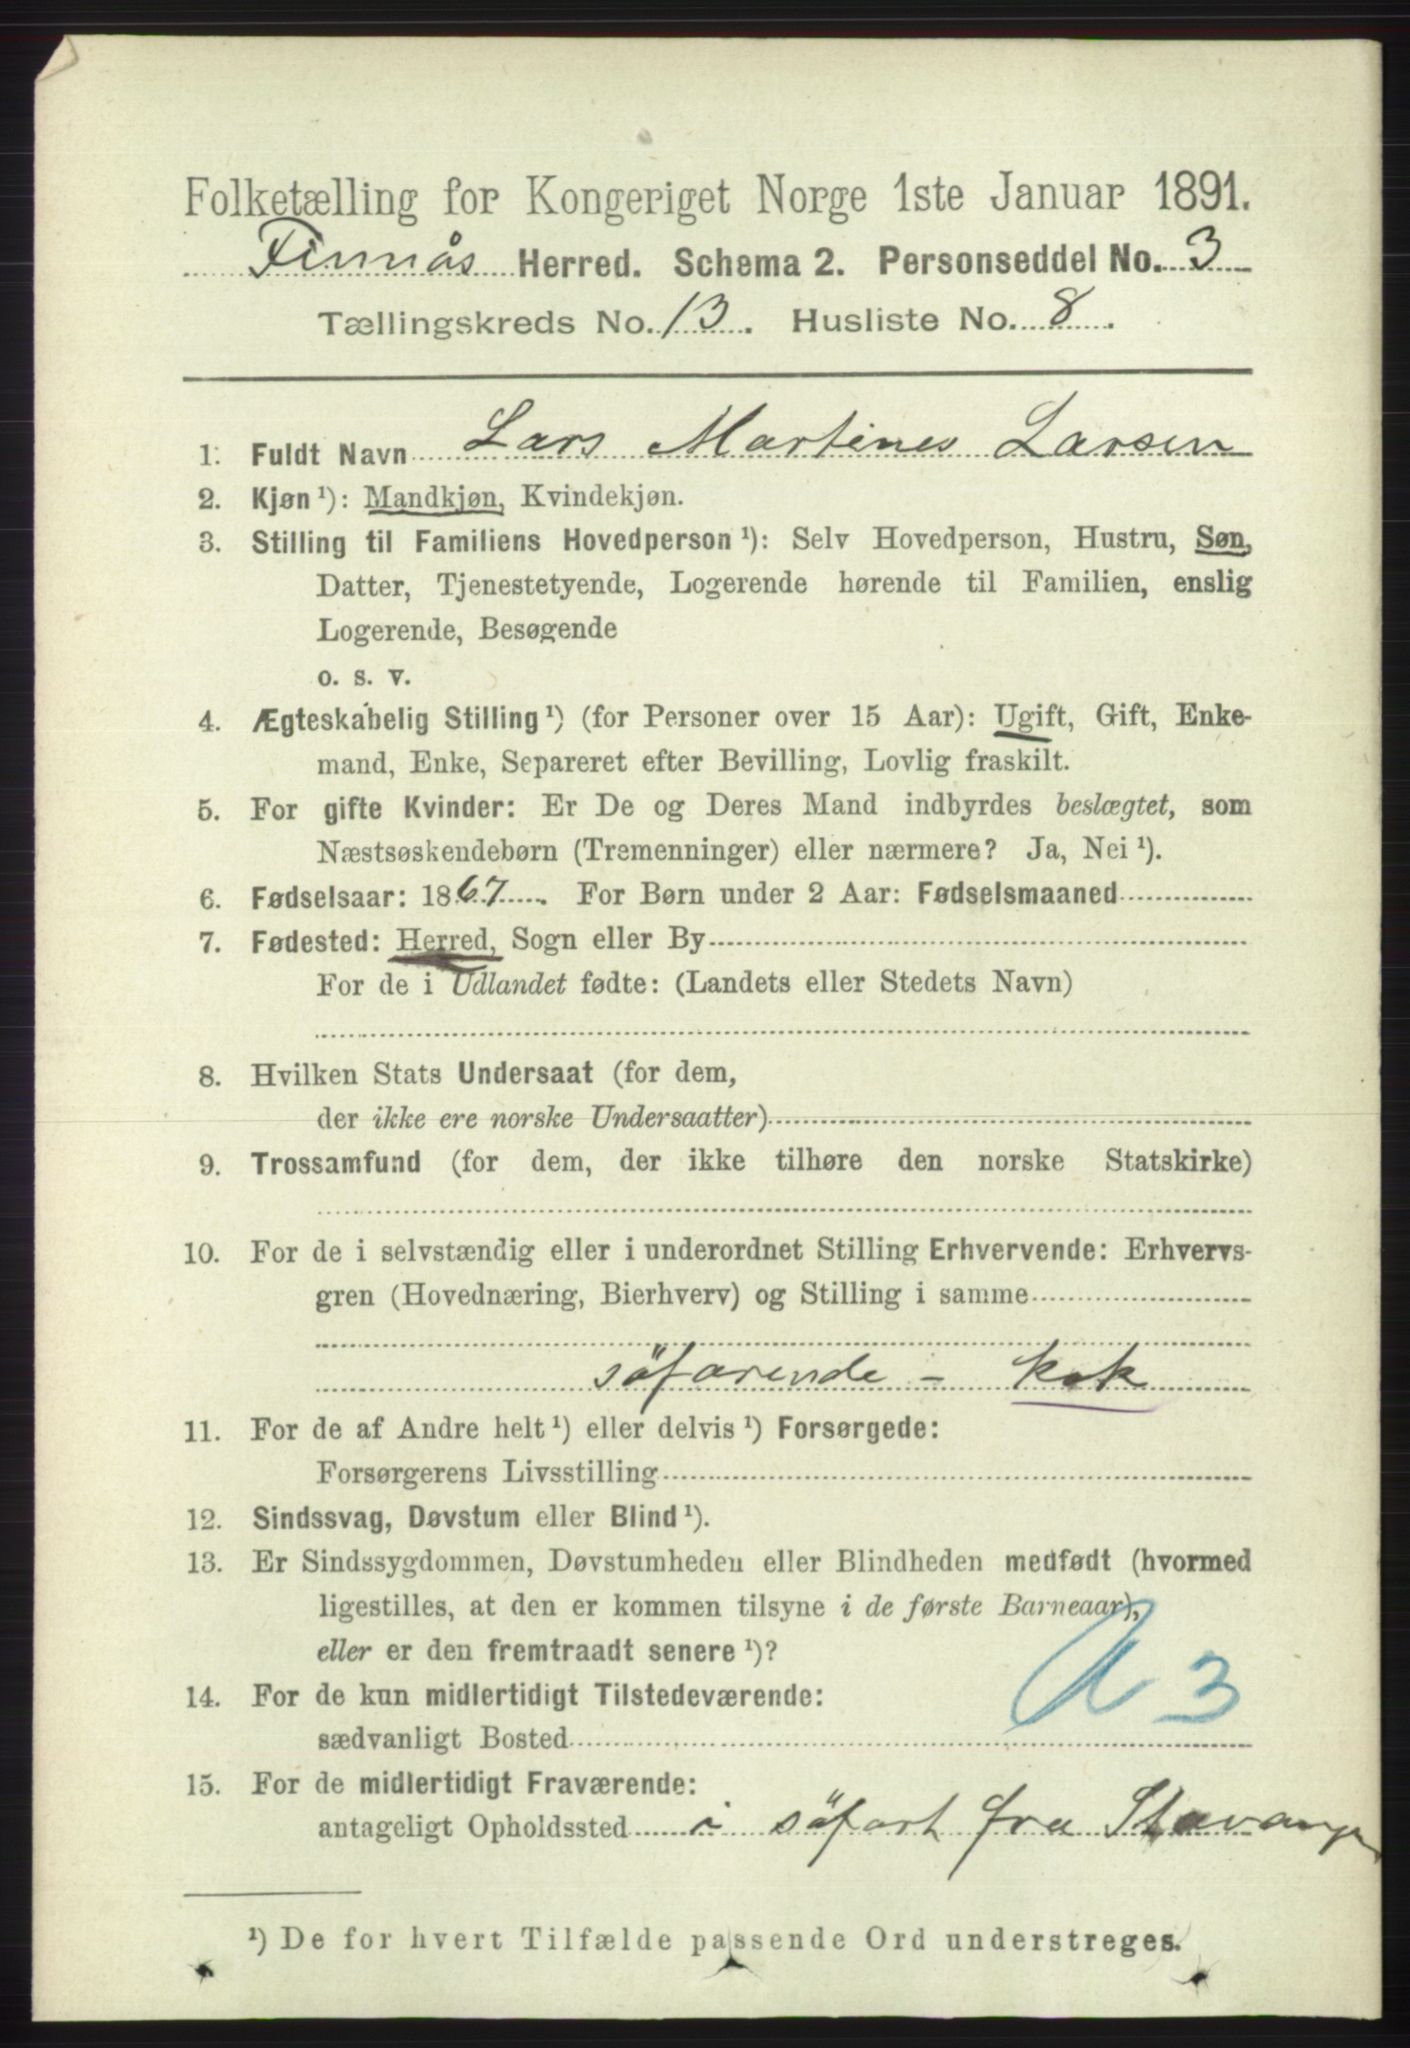 Folketælling for Kongeriget Norge 1ste Januar 1891.
Finnås Herred. Schema 2. Personseddel No. 3
Tællingskreds No. 13. Husliste No. 8.
1. Fuldt Navn Lars Martines Larsen
2. Kjøn ¹): Mandkjøn, Kvindekjøn.
3. Stilling til Familiens Hovedperson ¹): Selv Hovedperson, Hustru, Søn,
Datter, Tjenestetyende, Logerende hørende til Familien, enslig
Logerende, Besøgende
o. s. v.
4. Ægteskabelig Stilling ¹) (for Personer over 15 Aar): Ugift, Gift, Enke-
mand, Enke, Separeret efter Bevilling, Lovlig fraskilt.
5. For gifte Kvinder: Er De og Deres Mand indbyrdes beslægtet, som
Næstsøskendebørn (Tremenninger) eller nærmere? Ja, Nei ¹).
6. Fødselsaar: 1867. For Børn under 2 Aar: Fødselsmaaned
7. Fødested: Herred, Sogn eller By
For de i Udlandet fødte: (Landets eller Stedets Navn)
8. Hvilken Stats Undersaat (for dem,
der ikke ere norske Undersaatter)
9. Trossamfund (for dem, der ikke tilhøre den norske Statskirke)
10. For de i selvstændig eller i underordnet Stilling Erhvervende: Erhvervs-
gren (Hovednæring, Bierhverv) og Stilling i samme
söfarende - kok
11. For de af Andre helt ¹) eller delvis ¹) Forsørgede:
Forsørgerens Livsstilling
12. Sindssvag, Døvstum eller Blind ¹).
13. Er Sindssygdommen, Døvstumheden eller Blindheden medfødt (hvormed
ligestilles, at den er kommen tilsyne i de første Barneaar),
eller er den fremtraadt senere ¹)?
14. For de kun midlertidigt Tilstedeværende:
sædvanligt Bosted
15. For de midlertidigt Fraværende:
antageligt Opholdssted i söfart fra Stavanger
¹) De for hvert Tilfælde passende Ord understreges.